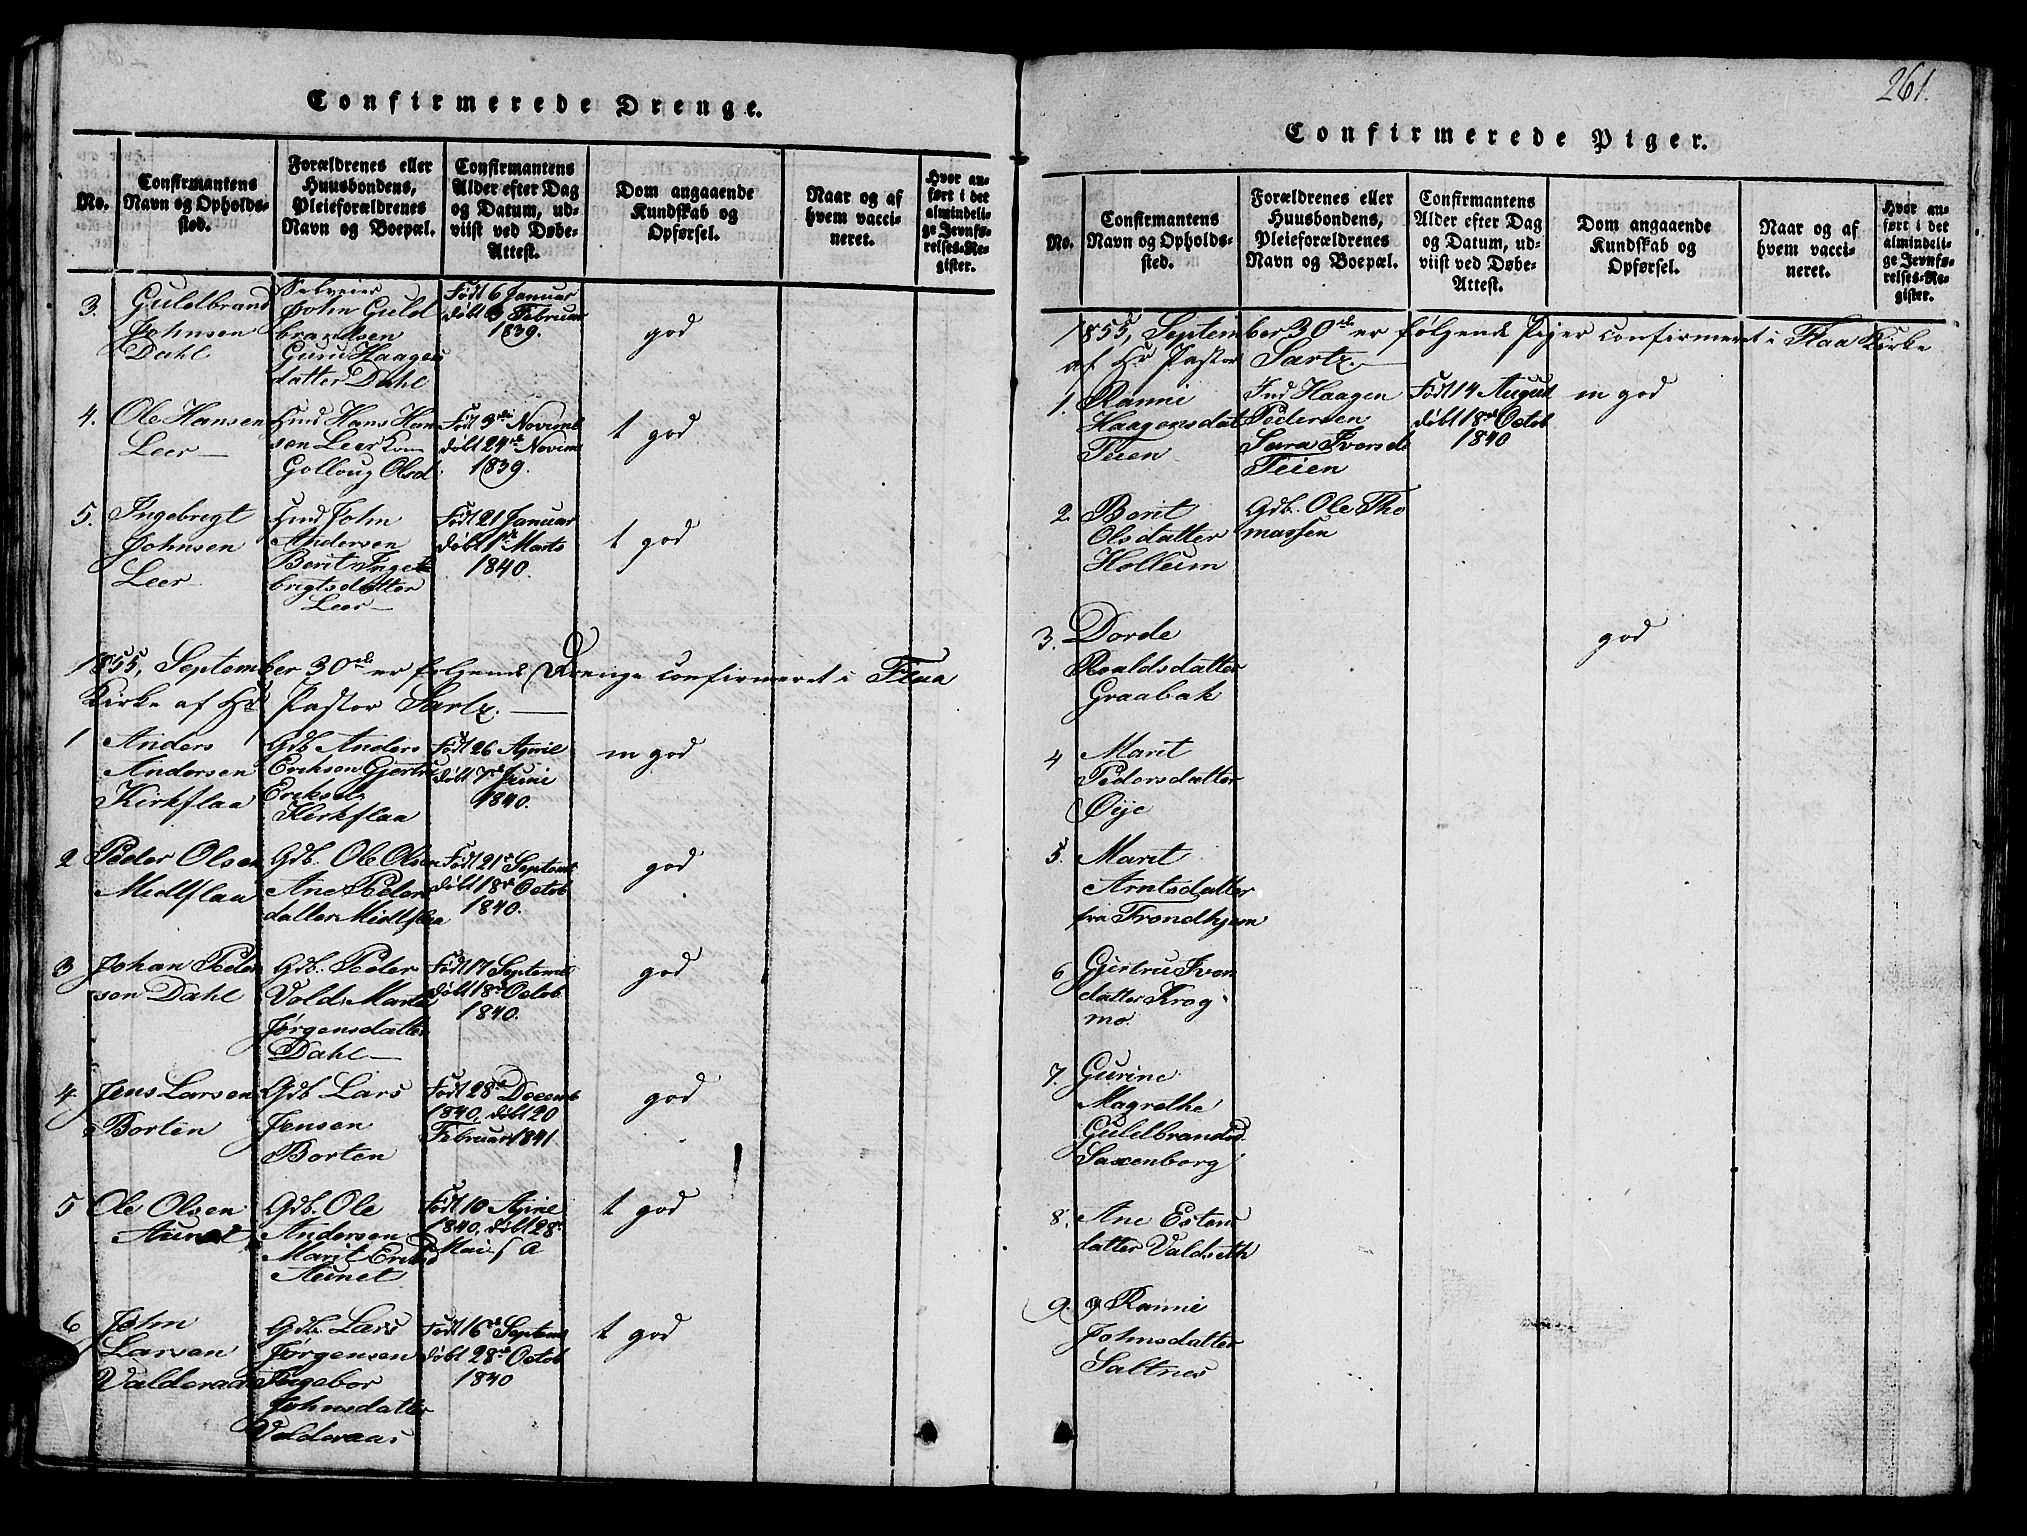 Confirmerede Drenge.
No.
Confirmantens
Navn og Opholds-
sted.
Forældrenes eller
Huusbondens,
Pleieforældrenes
Navn og Boepæl.
Confirmantens
Alder efter Dag
og Datum, ud-
viist ved Døbe-
Attest.
Dom angaaende
Kundskab og
Opførsel.
Naar og af
hvem vacci-
neret.
Hvor an-
ført i det
almindeli-
ge Jevnfø-
relses-Re-
gister.
3.
Guldbrand
Johnsen
Dahl
Selveier
John Guld
brandsen
Guru Haagens
datter Dahl
Født 6 Januar
døbt 3 Februar
1839.
god
4.
Ole Hansen
Leer
Hmd Hans Han
sen Leer Kone
Golloug Olsd.
Født 3die Novemb
døbt 24de Novem
1839.
t god
5.
Ingebregt
Johnsen
Leer
Hmd John
Andersen
Berit Inge
brigtsdatter
Leer
Født 21 Januar
døbt 1ste Marts
1840.
t god
1855, September 30te er følgende Drenge confirmeret i Flaa
Kirke af Hr Pastor Sartz.
1
Anders
Andersen
Kirkflaa
Gdb. Anders
Eriksen Gjertru
Eriksd.
Kirkflaa
Født 26 Aprile
døbt 7de Junie
1840.
m god
2
Peder Olsen
Midtflaa
Gdb. Ole Olsen
Ane Peders
datter Midtflaa
Født 21de Septemb
døbt 18de Octob
1840.
god
3
Johan Peder
sen Dahl
Gdb. Peder
Vold, Marit
Jørgensdatter
Dahl
Født 17 Septemb
døbt 18de Octob
1840.
god
4.
Jens Larsen
Borten
Gdb Lars
Jensen
Borten
Født 28de Decemb
1840, døbt 20
Februar 1841
god
5
Ole Olsen
Aunet
Gdb. Ole
Andersen
Marit Eriksd
Aunet
Født 10 Aprile
1840, døbt 28de
Mai s A
t god
6
John
Larsen
Valderaas
Gdb. Lars
Jørgensen
Ingebor
Johnsdatter
Valderaas
Født 16de Septemb
døbt 28de Octob
1840
t god
261.
Confirmerede Piger.
No.
Confirmantens
Navn og Opholds-
sted.
Forældrenes eller
Huusbondens,
Pleieforældrenes
Navn og Boepæl.
Confirmantens
Alder efter Dag
og Datum, ud-
viist ved Døbe-
Attest.
Dom angaaende
Kundskab og
Opførsel.
Naar og af
hvem vacci-
neret.
Hvor an-
ført i det
almindeli-
ge Jevnfø-
relses-Re-
gister.
1855, September 30te er følgende Piger confirmeret i Flaa Kirke
af Hr Pastor Sartz.
1.
Ranni
Haagensdat
Teien
Ind Haagen
Pedersen
Sara Iversd
Teien
Født 14 August
døbt 18de Octob
1840
m god
2.
Berit
Olsdatter
Hollum
Gdb. Ole Tho
massen
3.
Dorde
Roaldsdatter
Graabak
god
4
Marit
Pedersdatter
Øye
5.
Marit
Arntsdatter
fra Trondhjem
6
Gjertru Iver
datter Krog
mo.
7.
Gurine
Magrethe
Guldbrandsd.
Saxenborg
8.
Ane Estens
datter Valdseth
9.
9 Ranni
Johnsdatter
Saltnes